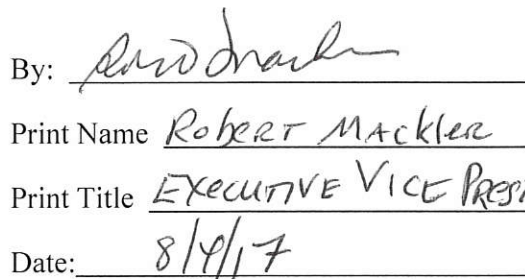 By:
Print Name Robert Mackler
Print Title Executive Vice Presi
Date: 8/4/17